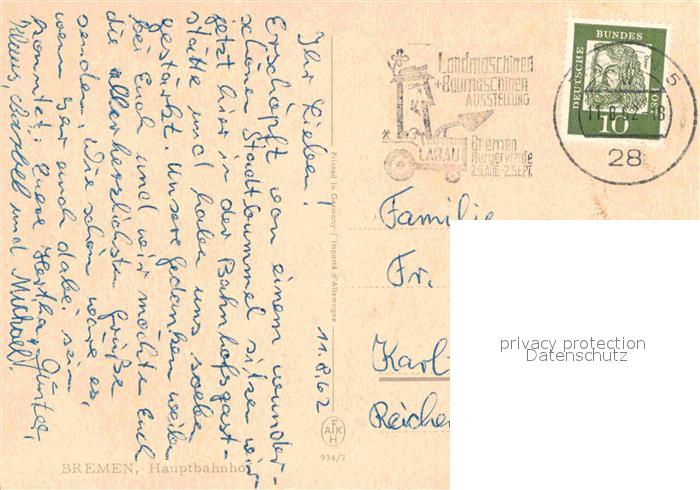 Ihr Lieben!
11.8.62
Erschöpft von einem wunder-
schönen Stadtbummel sitzen wir
jetzt hier in der Bahnhofsgast-
stätte und haben uns soeben
gestärkt. Unsere Gedanken weilen
bei Euch und wir möchten Euch
die allerherzlichsten Grüße
senden. Wie schön wäre es,
wenn Ihr auch dabei sein
könntet. Eure Hertha, Günter,
Klaus, und Michael.
BREMEN, Hauptbahnho
Printed in Germany / Importé d'Allemagne
F
AKH
934/7
Landmaschinen
+Baumaschinen
AUSSTELLUNG
LABAU
Bremen
Bürgerweide
25.AUG.-2.SEPT.
DEUTSCHE
BUNDES
POST
10
5
11.8.62-18
28
Familie
Fr.
Karl
Reichen
privacy protection
Datenschutz